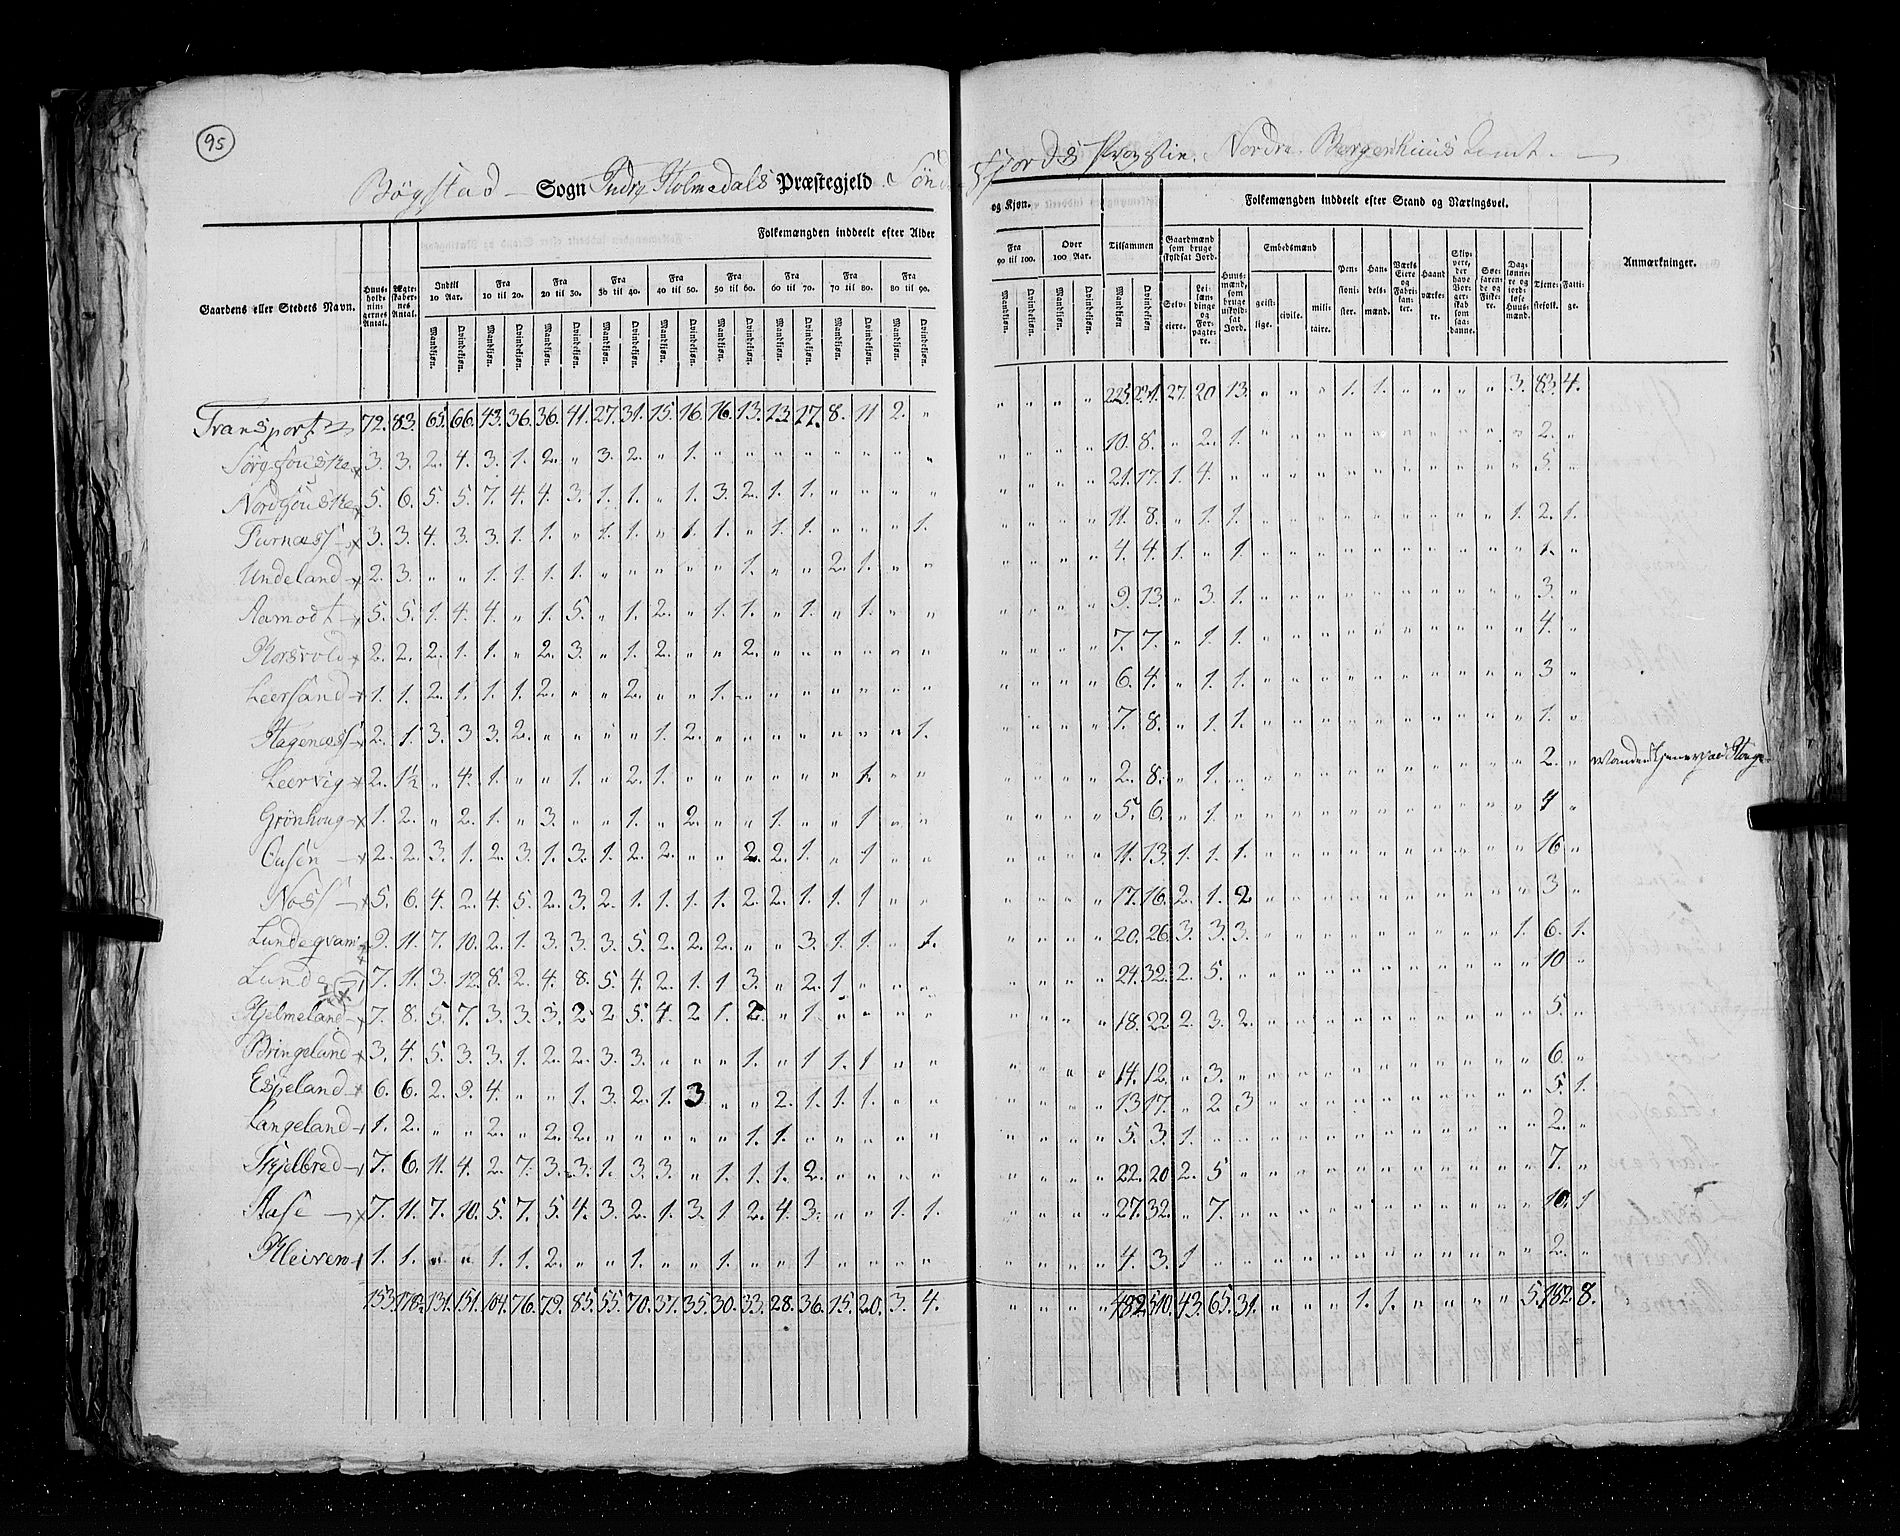 95
Bøgstad Sogn Indre Holmedals Præstegjeld Sönd
Fjords Provstie. Nordre Bergenhuus Amt.
Folkemængden inddeelt efter Alder
og Kjøn.
Folkemængden inddeelt efter Stand og Næringsvei.
Gaardens eller Stedets Navn.
Huusholdningernes Antal.
Ægteskabernes Antal.
Indtil 10 Aar.
Fra 10 til 20.
Fra 20 til 30.
Fra 30 til 40.
Fra 40 til 50.
Fra 50 til 60.
Fra 60 til 70.
Fra 70 til 80.
Fra 80 til 90.
Fra 90 til 100.
Over 100 Aar.
Tilsammen
Mandkjøn. Qvindekjøn.
Gaardmænd som bruge skyldsat Jord.
Selveiere.
Leilændinge og Forpagtere.
Huusmænd, som bruge uskyldsat Jord.
Embedsmænd
geistlige. civile. militaire.
Pensionister.
Handelsmænd.
Værkseiere og Fabrikanter.
Haandværkere.
Skippere, der have Borgerskab som saadanne.
Søefarende og Fiskere.
Daglønnere og jordløse Huusmænd.
Tjenestefolk.
Fattige.
Anmærkninger.
Transport 72. 83. 65. 66. 43. 36. 36. 41. 27. 31. 15. 16. 16. 13. 13. 17. 8. 11 2. " 225. 231. 27. 20 13. " " " 1. 1. " " " " 3. 83. 4.
3. 3. 2. 4. 3. 1. 2. " 3. 2. " 1. " " " " " " " " 10. 8. " 2. 1. 2. "
5. 6. 5. 5. 7. 4. 4. 3. 1. 1. " 1. 3. 2. 1. 1. " " " " 21. 17. 1. 4. 5. "
Furnæss 3. 3. 4. 3. 3. 1. 1. " 1. 1. " 1. 1. " 1. 1. " " " 1. 11. 8. " 1. 1. 1. 2. 1.
Undeland 2. 3. " " 1. 1. 1. 1. " " " " " 1. " " 2. 1. " " 4. 4. 1. " 1. 1. "
Aamodt 5. 5. 1. 4. 4. " 1. 5. " 1. 2. " 1. 1. " 1. " 1. " " 9. 13. " 3. 1. 3. "
Korsvold 2. 2. 2. 1. 1. " 2. 3. " 1. 2. " " 2. " " " " " " 7. 7. " 1. 1. 4. "
Leersand 1. 1. 2. 1. 1. 1. 2. " " 2. " " 1. " " " " " " " 6. 4. " 1. 1. 3 "
Hagenæss 2. 1. 3. 3 3. 2. " " " " 1. 2. " " " " " " " 1. 7. 8. " 1. 1. 1. "
Leervig 2. 1½ " 4. 1. " " 1. " 2. 1. " " " " " " 1. " " 2. 8. " 1. " 2. "
Grönhoug 1. 2. " 2. 1. " 3. " " 1. " 2. " " 1. " " 1 " " 5. 6. " 1. " 4 "
Ousen 2. 2. 3. 1. 2. 3. 1. 3. 1. 2. 2. " " 2. 2. 1. " 1 " " 11. 13. 1. 1. 1. 16 "
Noss 5. 6. 4. 2. 4. 5. 2. 3. 2. 1. 1. 1. 1. 2. 2. 1. 1. 1 " " 17. 16. 2. 1. 2 3 "
Lundeqvam 9. 11. 7. 10. 2. 1. 3. 3. 3. 5. 2. 2. 2. " " 3. 1. 1. " 1. 20. 26. 3. 3. 3. 1. 6. 1.
Lunde 7. 11. 3. 12. 8. 2. 4. 8. 5. 4. 2. 1. 1 3. " 2. 1 " " " 24. 32. 2. 5. " 10 "
Hjelmeland 7. 8. 5. 7. 3. 3. 3. 2 2 5. 4. 2 1. 2. " 1. " " " " 18. 22 2. 3. 2. 5. "
Bringeland 3. 4. 5. 3. 3. 1. 2. 2. 3. 3. " " " 1. " 1. 1. 1 " " 14. 12. " 3. " 6. "
Espeland 6. 6. 2. 9. 4. " " 1. 3. 2. 1. 3 " " 2. 1. 1. 1. " " 13 17. " 2. 3 5. 1.
Langeland 1. 2. " " 2. " 2. 2. " " " " " 1. 1. " " " " " 5. 3. 1. " " 2. "
Skjelbred 7. 6. 11. 4. 2. 7. 3. 3. 1. 3. 3. " 1. 1. 1. 2. " " " " 22. 20 2. 5 " 7. "
Aase 7. 11. 7. 10. 5. 7. 5. 4. 3. 2. 1. 3. 1. 2. 4. 3. " " 1. 1. 27. 32. " 7. " 10. 1
Kleiven 1. 1. " " 1. 1. 2. " " 1. " " 1. " " 1 " " " " 4. 3. 1 " " 2. "
153. 178½ 131. 151. 104. 76. 79. 85. 55. 70. 37. 35. 30. 33. 28. 36. 15. 20. 3. 4. 482 510. 43. 65. 31. " " " 1. 1. " " " " 5. 182. 8.